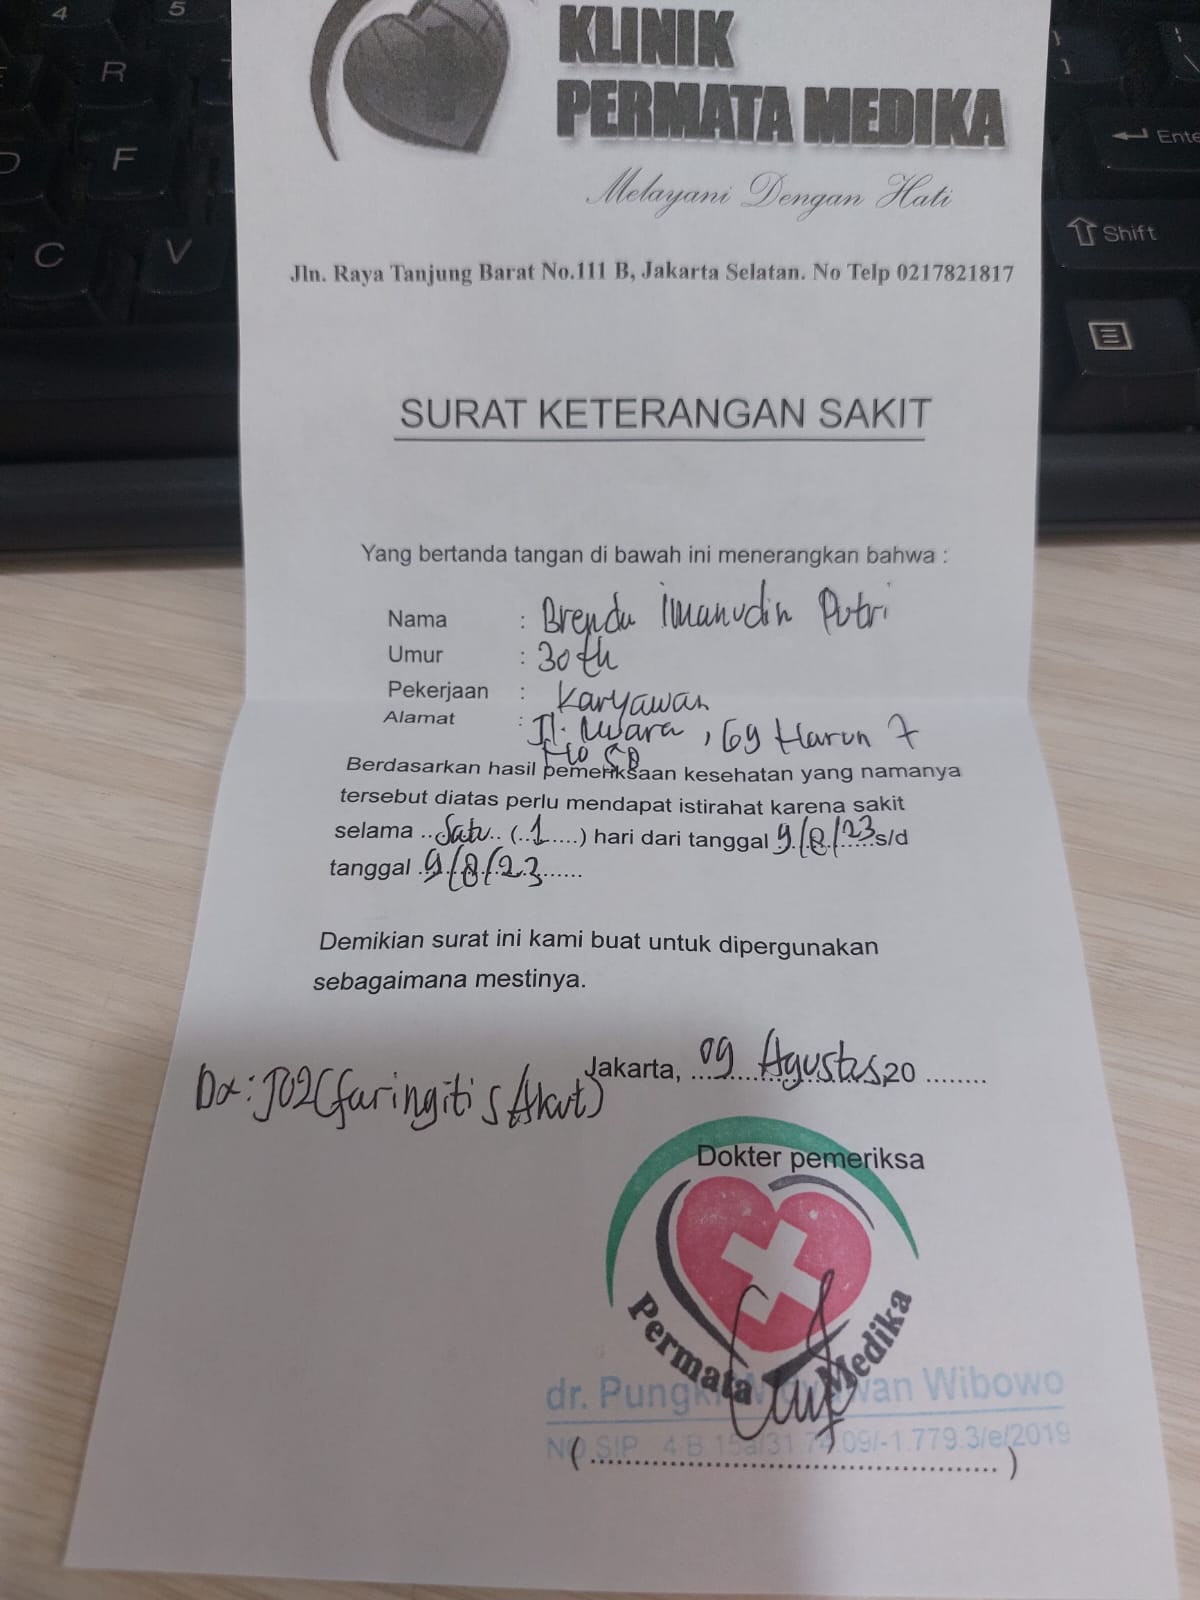 4 5
R
D F
C V
} ]
Enter
Shift
KLINIK
PERMATA MEDIKA
Melayani Dengan Hati
Jln. Raya Tanjung Barat No.111 B, Jakarta Selatan. No Telp 0217821817
SURAT KETERANGAN SAKIT
Yang bertanda tangan di bawah ini menerangkan bahwa :
Nama : Brenda Imanudin Putri
Umur : 30 th
Pekerjaan : Karyawan
Alamat : Jl. , Gg Harun 7
No
Berdasarkan hasil pemeriksaan kesehatan yang namanya
tersebut diatas perlu mendapat istirahat karena sakit
selama ..Satu.. (..1.....) hari dari tanggal 9/8/23 s/d
tanggal 9/8/23......
Demikian surat ini kami buat untuk dipergunakan
sebagaimana mestinya.
Jakarta, 09 Agustus 20 ........
Dx: J02 (faringitis Akut)
Dokter pemeriksa
Permata Medika
dr. Wibowo
NO SIP 09/-1.779.3/e/2019
(..................................................)